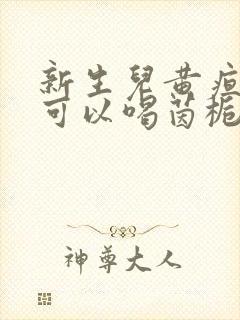 新生兒黄疸
可以喝茵栀
神尊大人